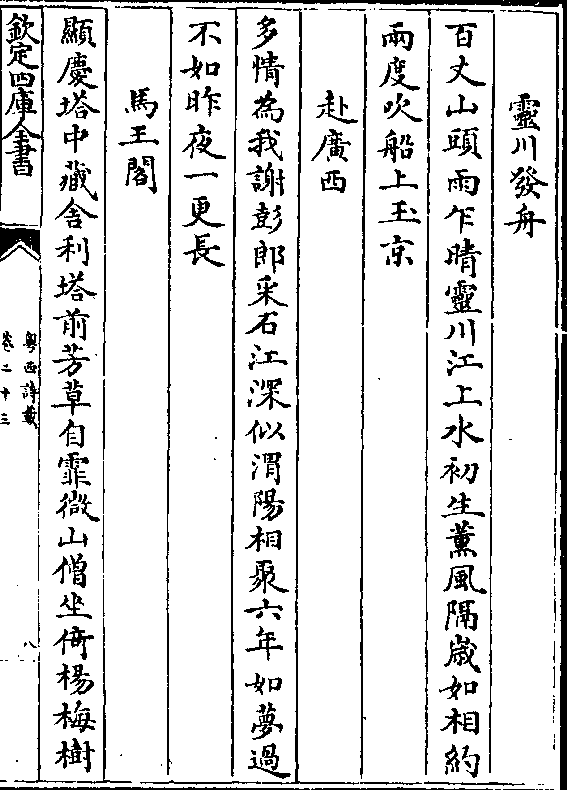 靈川發舟
百丈山頭雨乍晴靈川江上水初生薰風隔嵗如相約
兩度吹船上玉京
赴廣西
多情為我謝彭郎采石江深似渭陽相聚六年如夢過
不如昨夜一更長
馬王閣
顯慶塔中藏舍利塔前芳草自霏微山僧坐倚楊梅樹
欽定四庫全書
粤西詩載
卷二十三
八